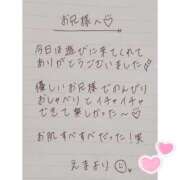 お兄様へ♡
今日は遊びに来てくれて
ありがとうございました
優しいお兄様でのんびり
おしゃべりとイチャイチャ
できて楽しかった〜♡
お肌すべすべだった！笑
えまより